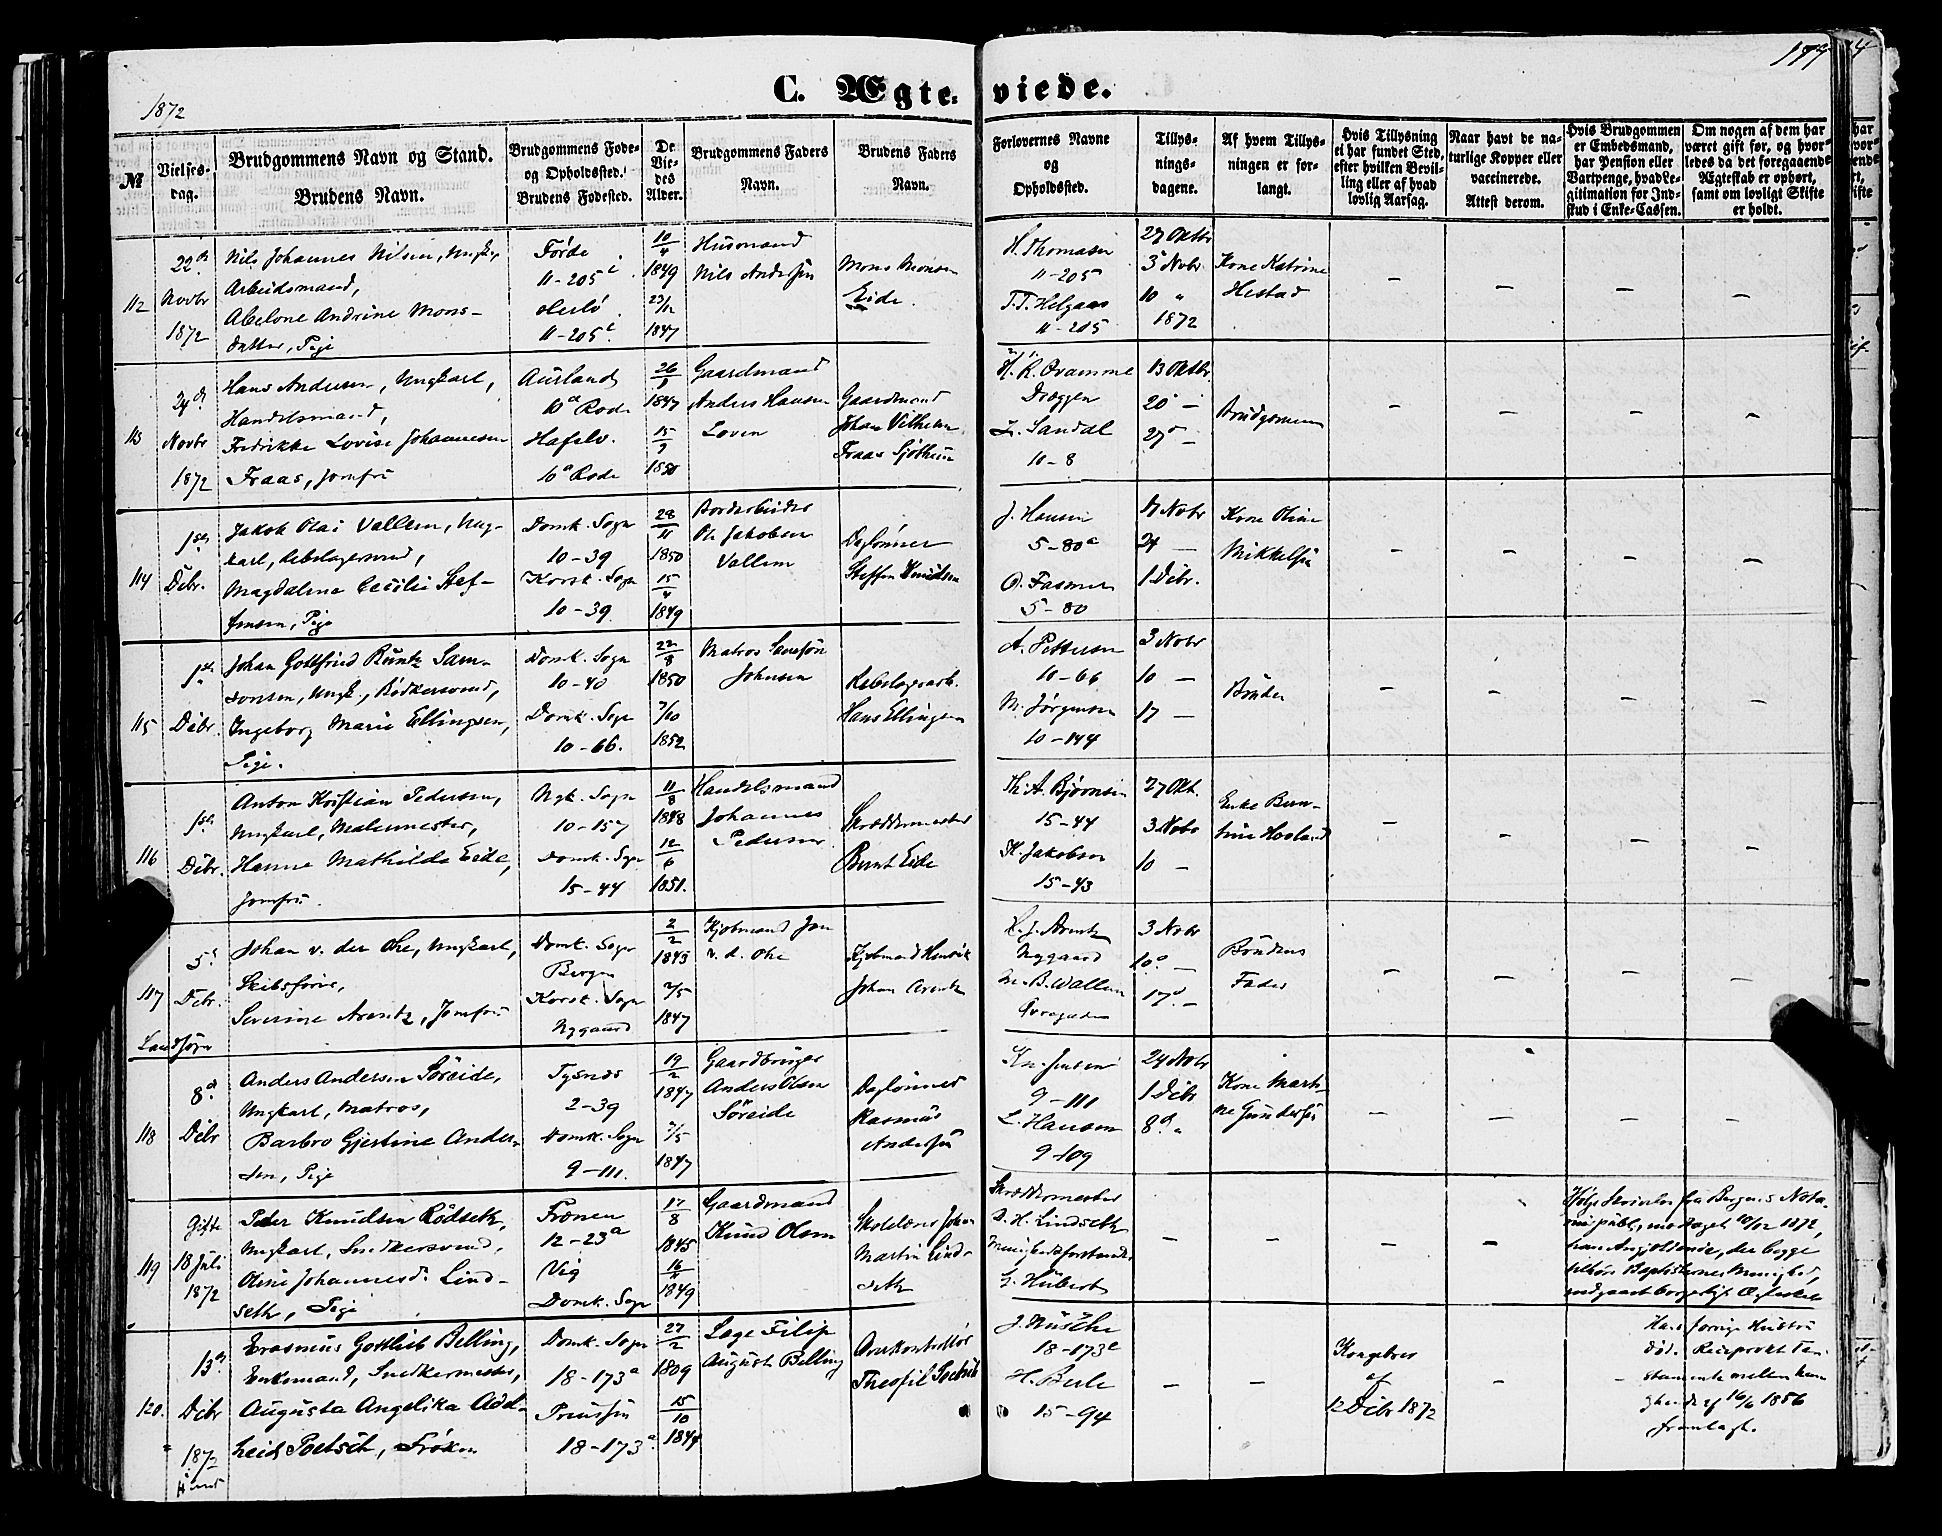 1872
C. Ægte-viede.
№
Vielses-
dag.
Brudgommens Navn og Stand.
Brudens Navn.
Brudgommens Føde-
og Opholdssted.
Brudens Fødested.
De
Vie-
des
Alder.
Brudgommens Faders
Navn.
Brudens Faders
Navn.
Forlovernes Navne
og
Opholdssted.
Tillys-
nings-
dagene.
Af hvem Tillys-
ningen er for-
langt.
Hvis Tillysning
ei har fundet Sted,
efter hvilken Bevil-
ling eller af hvad
lovlig Aarsag.
Naar havt de na-
turlige Kopper eller
vaccinerede.
Attest derom.
Hvis Brudgommen
er Embedsmand,
har Pension eller
Vartpenge, hvad Le-
gitimation for Ind-
skud i Enke-Cassen.
Om nogen af dem har
været gift før, og hvor-
ledes da det foregaaende
Ægteskab er ophørt,
samt om lovligt Skifte
er holdt.
112
22d
Novbr
1872
Nils Johannes Nilsen, Ungk.,
Arbeidsmand,
Abelone Andrine Mons-
datter, Pige
Førde
11-205
Herlø
11-205
10/4
1849
23/12
1847
Husmand
Nils Andersen
Mons Monsen
Eide.
H. Thomasen
11-205
T. T. Helgaas
11-205
27 Oktbr
3 Novbr.
10 "
1872
Kone Katrine
Hestad
113
24d
Novbr
1872
Hans Andersen, Ungkarl,
Handelsmand,
Fredrikke Lovise Johannesen
Fraas, Jomfru
Aurland
10 Rode
Hafslo.
10 Rode
1847
1850
Gaardmand
Anders Hansen
Loven
Gaardmand
Johan Vilhelm
Fraas Sjøtheim
H. R. Qvamme
Dræggen
L. Sandal
10-8
13 Oktbr
20 -
27 -
Brudgommen
114
1ste
Debr.
Jakob Olai Vallem, Ung-
karl, Rebslagersvend,
Magdalena Cecilie Stef-
fensen, Pige
Domk. Sogn
10-39
Korsk. Sogn
10-39
28/11
1850
15/4
1849
Bordarbeider
Ole Jakobsen
Vallem
Dagløner
Steffen Knudsen
J. Hansen
5-80
O. Fasmer
5-80
17 Novbr
24 -
1 Debr.
Kone Oline
Mikkelsen
115
1ste
Debr.
Johan Gottfried Küntz Sam-
sonsen, Ungk., Bødkersvend,
Ingeborg Marie Ellingsen,
Pige.
Domk. Sogn
10-40
Domk. Sogn
10-66.
22/8
1850
7/10
1852
Matros Samson
Johnsen
Rebslagerarb.
Hans Ellingsen
A. Pettersen
10-66
M. Jørgensen
10-144
3 Novbr
10 -
17 -
Bruden
116
1ste
Debr.
Anton Kristian Pedersen,
Ungkarl, Malermester,
Hanne Mathilda Eide,
Jomfru.
Nyk. Sogn
10-157
Domk. Sogn
15-44
11/8
1848
12/6
1851.
Handelsmand
Johannes
Pedersen
Skræddermester
Bernt Eide
Th. A. Bjørnsen
15-44
H. Jakobsen
15-43
27 Okt.
3 Nobr
10 -
Enke Bern-
tine Hovland
117
5d
Debr.
Landsogn
Johan v. der Ohe, Ungkarl,
Skibsfører,
Severine Arentz, Jomfru
Domk. Sogn
Bergen
Korsk. Sogn
Nygaard
2/2
1843
2/5
1847
Kjøbmand Jan
v. d. Ohe
Kjøbmand Henrik
Johan Arentz
H. J. Arentz
Nygaard
M. B. Wallem
3 Nobr
10 -
17 -
Brudens
Fader
118
8d
Debr
Anders Andersen Søreide,
Ungkarl, Matros,
Barbro Gjertine Ander-
sen, Pige
Tysnes
2-39
Domk. Sogn
9-111.
19/2
1847
7/5
1847
Gaardbruger
Anders Olsen
Søreide
Dagløner
Rasmus
Andersen
Kn. Jensen
9-111
L. Hansen
9-109
24 Nobr
1 Debr
8d "
Kone Marti-
ne Gundersen
119
Gifte
18 Juli
1872
Peder Knudsen Rødseth,
Ungkarl, Snedkersvend,
Oline Johannesd. Lind-
seth, Pige
Frænen
12-23a
Vig
Domk. Sogn
17/8
1845
1849
Gaardmand
Knud Olsen
Skolelærer Johan
Martin Lind-
seth
Skræddermester
B. H. Lindseth
Menighedsforstander
G. Hübert
Ifølge Skrivelse fra Bergens Nota-
rius publ., modtaget 10/12 1872,
har Angjældende, der begge
tilhøre Baptisternes Menighed,
indgaaet borgerligt Ægteskab
120.
13d
Debr
1872
Erasmus Gottlieb Belling,
Enkemand, Snedkermester,
Augusta Angelika Adel-
heid Poetsch, Frøken
Domk. Sogn
18-173a
Preussen
18-173a.
27/2
1809
15/10
1844
Læge Filip
August Belling
Theofil Poetsch
J. Küsche
18-173a
H. Berle
15-94
Kongebrev
af
12 Debr 1872
Hans forrige Hustru
død. Reciprokt Te-
stamente mellem ham
og hende af 16/6 1856
fremlagt.